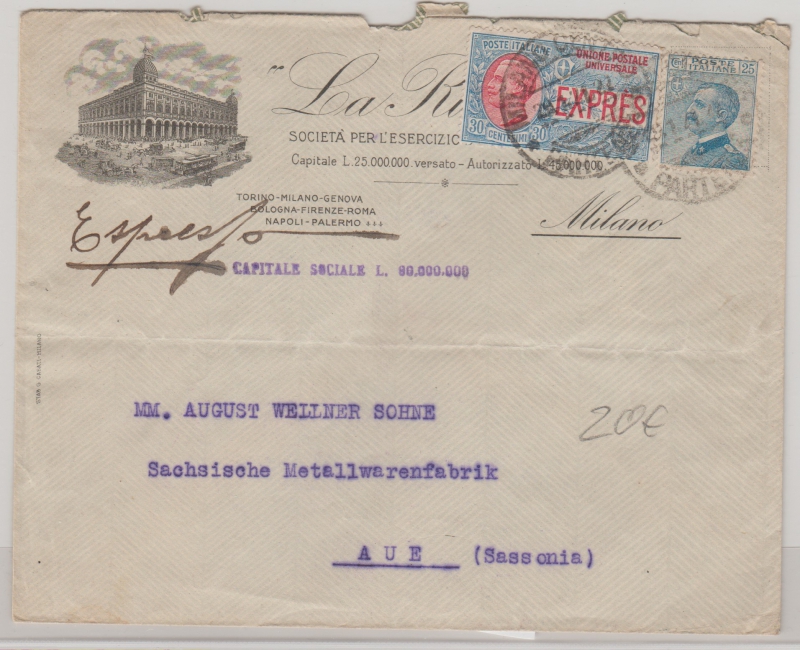 " La Ri
SOCIETÀ PER L'ESERCIZIO
Capitale L. 25.000.000 versato - Autorizzato L. 45.000.000
POSTE ITALIANE
UNIONE POSTALE
UNIVERSALE
EXPRÈS
30 CENTESIMI 30
POSTE
ITALIANE
Cmi 25
PARTE
TORINO-MILANO-GENOVA
BOLOGNA-FIRENZE-ROMA
NAPOLI-PALERMO
Milano
Espresso
CAPITALE SOCIALE L. 80.000.000
MM. AUGUST WELLNER SOHNE
20€
Sachsische Metallwarenfabrik
AUE (Sassonia)